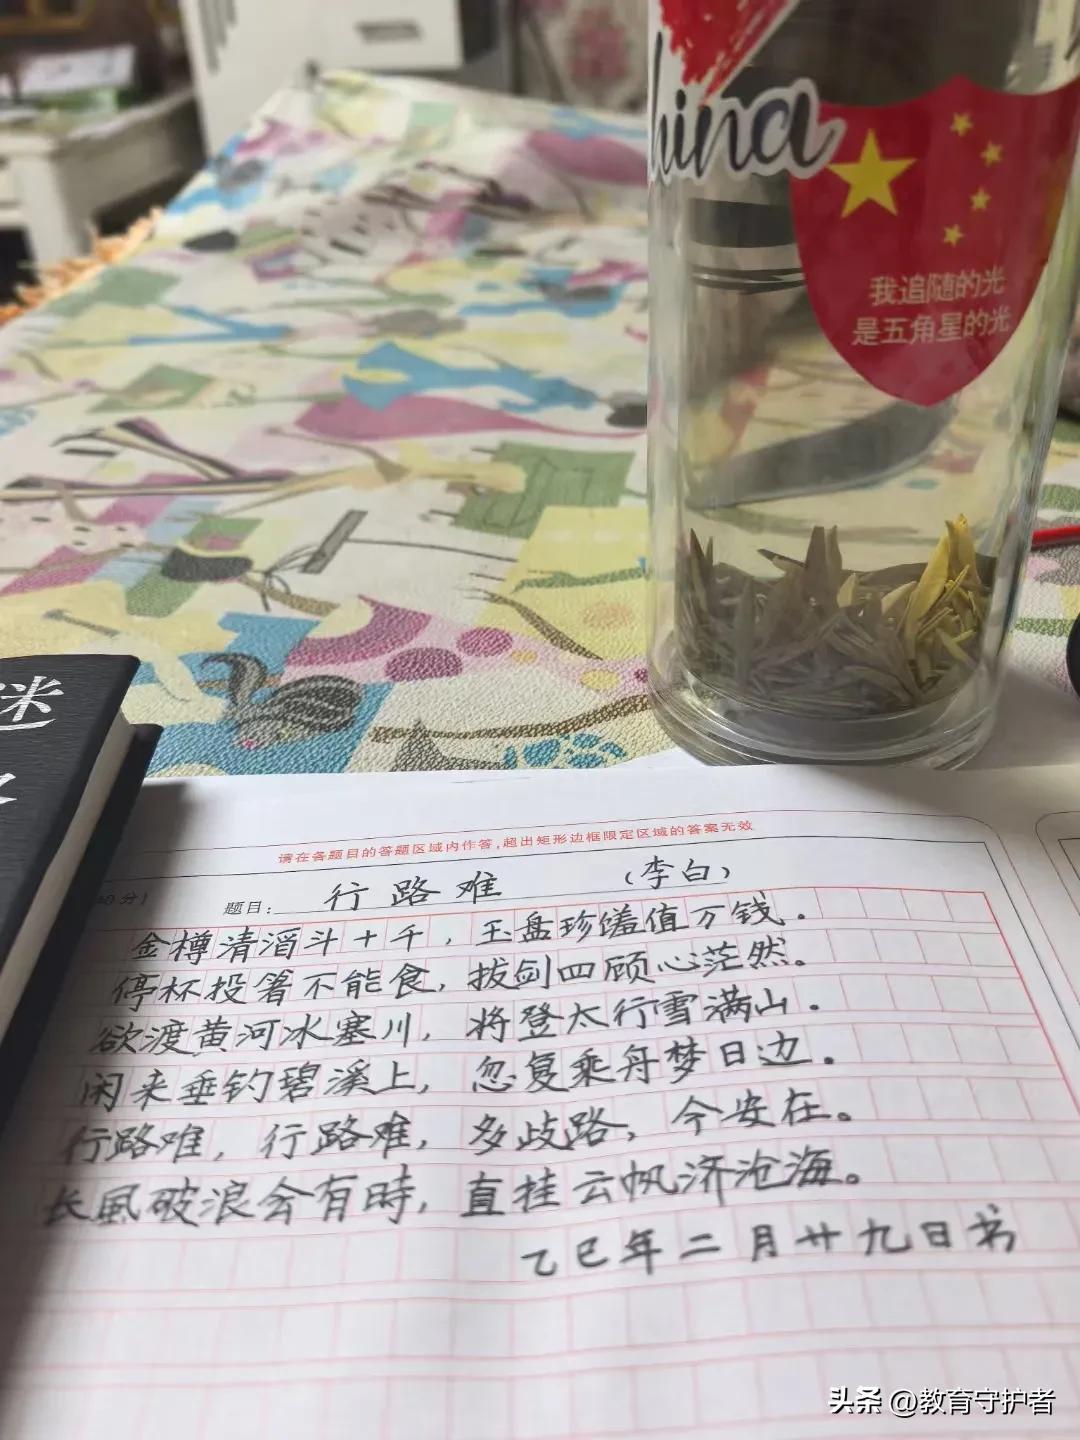 hina
我追随的光
是五角星的光
迷
请在各题目的答题区域内作答,超出矩形边框限定区域的答案无效
40分)
题目: 行路难 (李白)
金樽清滔斗十千,玉盘珍馐值万钱.
停杯投箸不能食,拔剑四顾心茫然。
欲渡黄河冰塞川,将登太行雪满山.
闲来垂钓碧溪上,忽复乘舟梦日边.
行路难,行路难,多歧路,今安在。
长風破浪会有時,直挂云帆济沧海。
乙巳年二月廿九日书
头条 @教育守护者